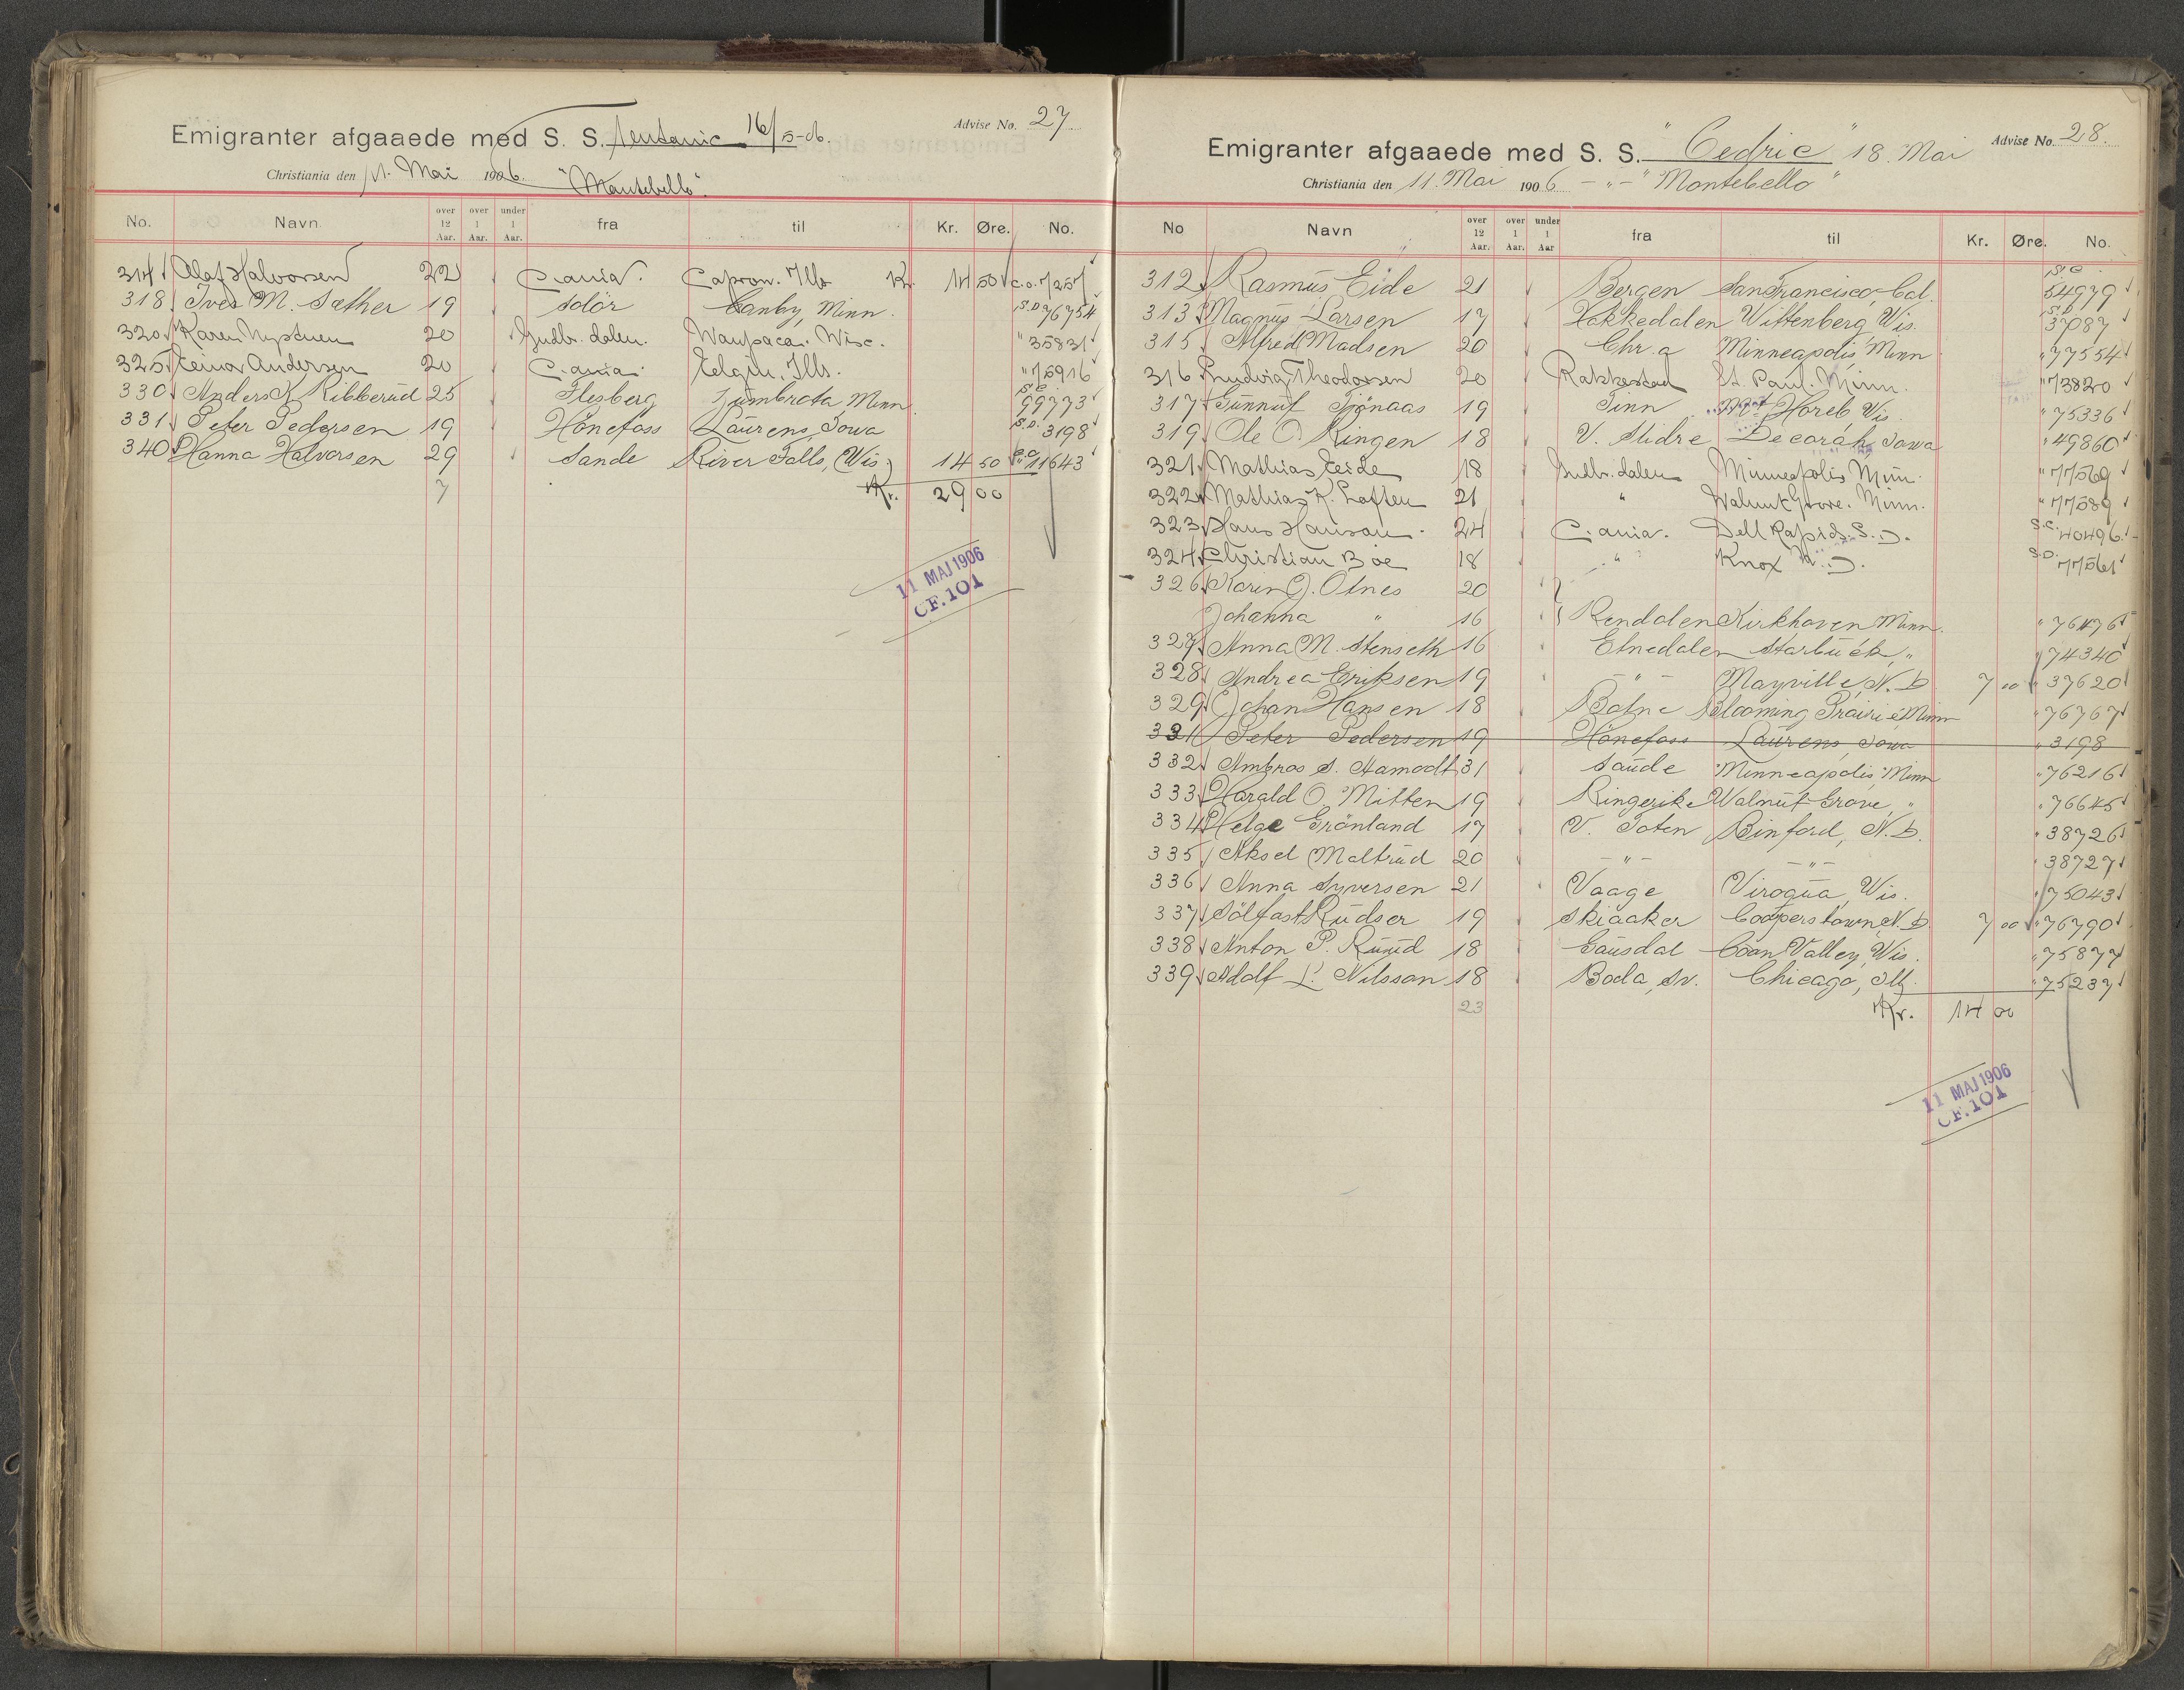 Advise No. 27
Emigranter afgaaede med S. S. Teutonic 16/5-06.
Christiania den 11. Mai 1906. "Montebello".
No. Navn over 12 Aar. over 1 Aar. under 1 Aar. fra til Kr. Øre. No.
314 Olaf Halvorsen 22 C.ania. Capron. Ills 14 50 C.O. 7257
318 Iver M. Sæther 19 Solör Canby, Minn. S.D. 76754
320 Karen Nystuen 20 Gudbr. dalen. Waupaca. Wisc. " 35831
325 Einar Andersen 20 C.ania. Elgin. Ills. " 75916
330 Anders K. Ribberud 25 Flesberg Zumbrota Minn. S.C. 99773
331 Peter Pedersen 19 Hönefoss Laurens, Iowa S.D. 3198
340 Hanna Halvorsen 29 Sande River Falls, Wis. 14 50 C.O. 11643
7 Kr. 29 00
11 MAJ 1906
CF. 101
Advise No. 28.
Emigranter afgaaede med S. S. "Cedric" 18. Mai
Christiania den 11. Mai 1906 - " - "Montebello"
No Navn over 12 Aar. over 1 Aar. under 1 Aar fra til Kr. Øre. No.
312 Rasmus Eide 21 Bergen San Francisco, Cal. S.C. 54979
313 Magnus Larsen 17 Hakkedalen Wittenberg Wis. S.D. 37087
315 Alfred Madsen 20 Chr.a Minneapolis, Minn " 77554
316 Ludvig Theodorsen 20 Rakkestad St. Paul. Minn. " 73820
317 Gunnuf Tjönaas 19 Tinn Mt Horeb, Wis. " 75336
319 Ole O. Ringen 18 V. Slidre Decorah, Iowa " 49860
321 Mathias Eide 18 Gudbr. dalen Minneapolis, Minn. " 77569
322 Mathias K. Loften 21 " Walnut Grove. Minn. " 77589
323 Hans Hansen. 24 C.ania. Dell Rapids. S. D. S.C. 40496
324 Christian Boe 18 " Knox N. D. S.D. 77561
326 Karin J. Olnes 20
Johanna " 16 Rendalen Kirkhoven Minn. " 76476
327 Anna M. Stenseth 16 Etnedalen Starbuck, " " 74340
328 Andrea Eriksen 19 - " - Mayville, N. D. 7 00 " 37620
329 Johan Hansen 18 Botne Blooming Prairie, Minn " 76767
331 Peter Pedersen 19 Hönefoss Laurens, Iowa " 3198
332 Ambros S. Aamodt 31 Saude Minneapolis Minn " 76216
333 Harald O. Mitten 19 Ringerike Walnut Grove " " 76645
334 Helge Grönland 17 V. Toten Binford, N. D. " 38726
335 Aksel Maltrud 20 - " - - " - " 38727
336 Anna Syversen 21 Vaage Viroqua, Wis. " 75043
337 Sölfast Rudser 19 Skiaaker Cooperstown, N. D. 7 00 " 76790
338 Anton P. Ruud 18 Gausdal Coon Valley, Wis. " 75877
339 Adolf L. Nilsson 18 Boda, Sv. Chicago, Ill. " 75237
23 Kr. 14 00
11 MAJ 1906
CF. 101